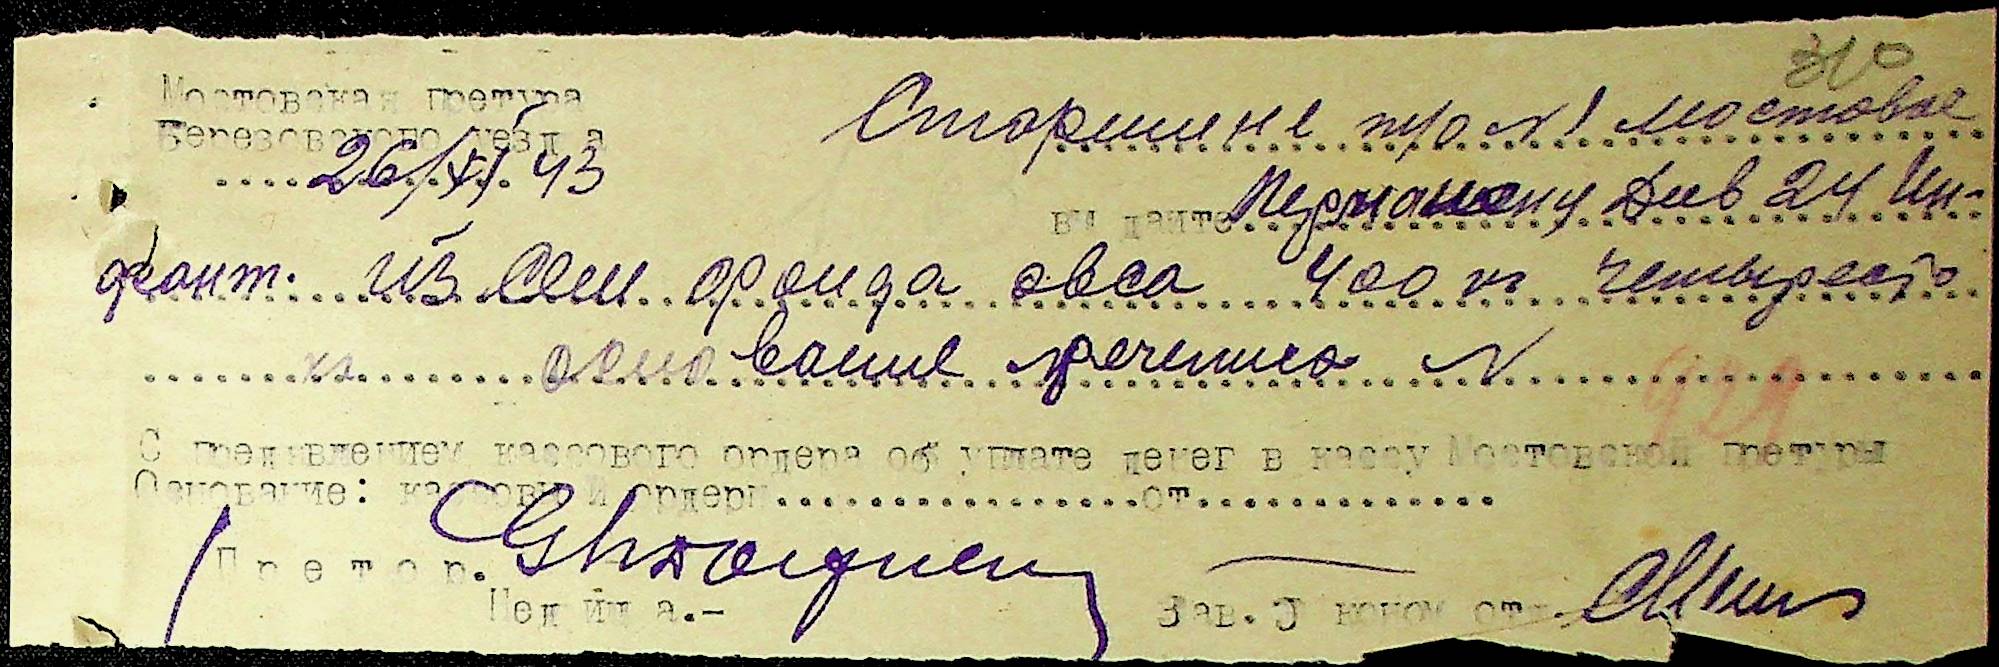 310
Мостовская претура
Березовского уезда
26/XI 43
Старшине тро N 1 Мостовое
выдайте Див 24 Ин-
фант. Из Сем фонда овса 400 кг четыреста
кг основание N
929
С предявлением кассового ордера об уплате денег в кассу Мостовской претуры
Основание: кассовый ордер от
Претор.
Зав. Эконом отд.